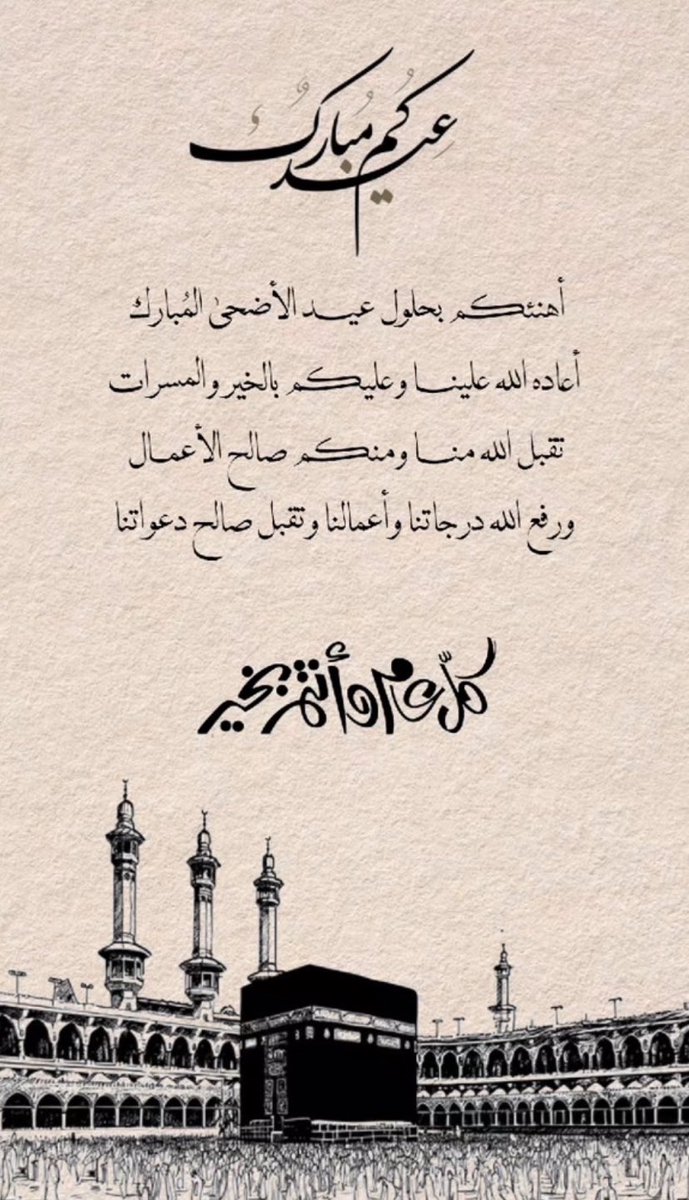 عيدكم مبارك
أهنئكم بحلول عيد الأضحىٰ المُبارك
أعاده الله علينا وعليكم بالخير والمسرات
تقبل الله منا ومنكم صالح الأعمال
ورفع الله درجاتنا وأعمالنا وتقبل صالح دعواتنا
كلّ عام وأنتم بخير